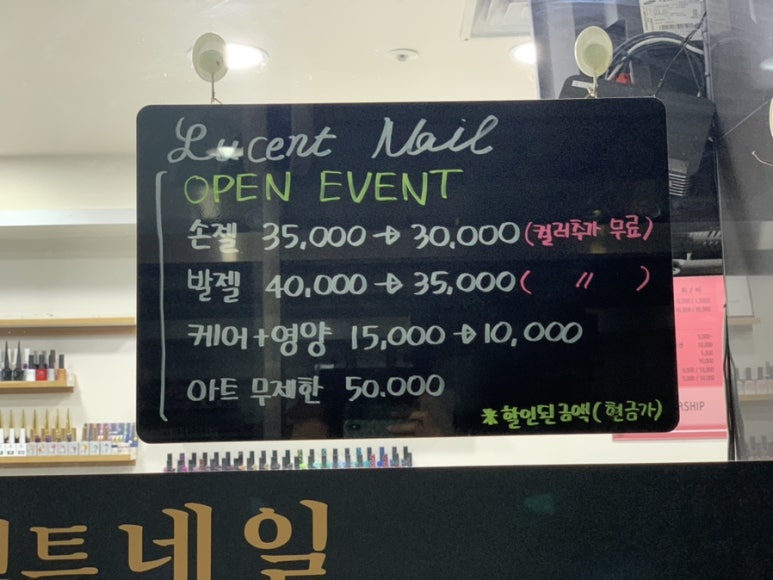 Lucent Nail
OPEN EVENT
손젤 35,000 → 30,000 (컬러추가 무료)
발젤 40,000 → 35,000 ( 〃 )
케어+영양 15,000 → 10,000
아트 무제한 50.000
※ 할인된 금액 (현금가)
트네일